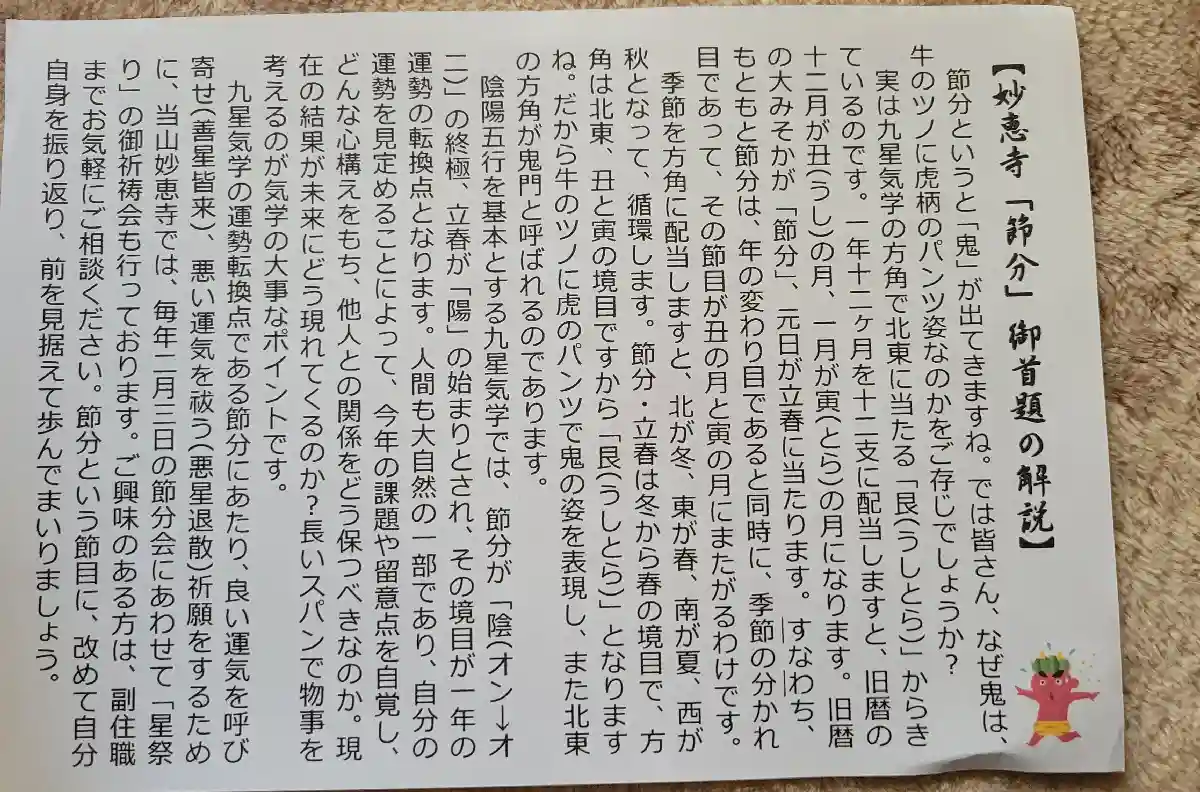 【妙恵寺「節分」御首題の解説】
節分というと「鬼」が出てきますね。では皆さん、なぜ鬼は、
牛のツノに虎柄のパンツ姿なのかをご存じでしょうか？
実は九星気学の方角で北東に当たる「艮(うしとら)」からき
ているのです。一年十二ヶ月を十二支に配当しますと、旧暦の
十二月が丑(うし)の月、一月が寅(とら)の月になります。旧暦
の大みそかが「節分」、元日が立春に当たります。すなわち、
もともと節分は、年の変わり目であると同時に、季節の分かれ
目であって、その節目が丑の月と寅の月にまたがるわけです。
季節を方角に配当しますと、北が冬、東が春、南が夏、西が
秋となって、循環します。節分・立春は冬から春の境目で、方
角は北東、丑と寅の境目ですから「艮(うしとら)」となります
ね。だから牛のツノに虎のパンツで鬼の姿を表現し、また北東
の方角が鬼門と呼ばれるのであります。
陰陽五行を基本とする九星気学では、節分が「陰(オン→オ
ニ)」の終極、立春が「陽」の始まりとされ、その境目が一年の
運勢の転換点となります。人間も大自然の一部であり、自分の
運勢を見定めることによって、今年の課題や留意点を自覚し、
どんな心構えをもち、他人との関係をどう保つべきなのか。現
在の結果が未来にどう現れてくるのか？長いスパンで物事を
考えるのが気学の大事なポイントです。
九星気学の運勢転換点である節分にあたり、良い運気を呼び
寄せ(善星皆来)、悪い運気を祓う(悪星退散)祈願をするため
に、当山妙恵寺では、毎年二月三日の節分会にあわせて「星祭
り」の御祈祷会も行っております。ご興味のある方は、副住職
までお気軽にご相談ください。節分という節目に、改めて自分
自身を振り返り、前を見据えて歩んでまいりましょう。